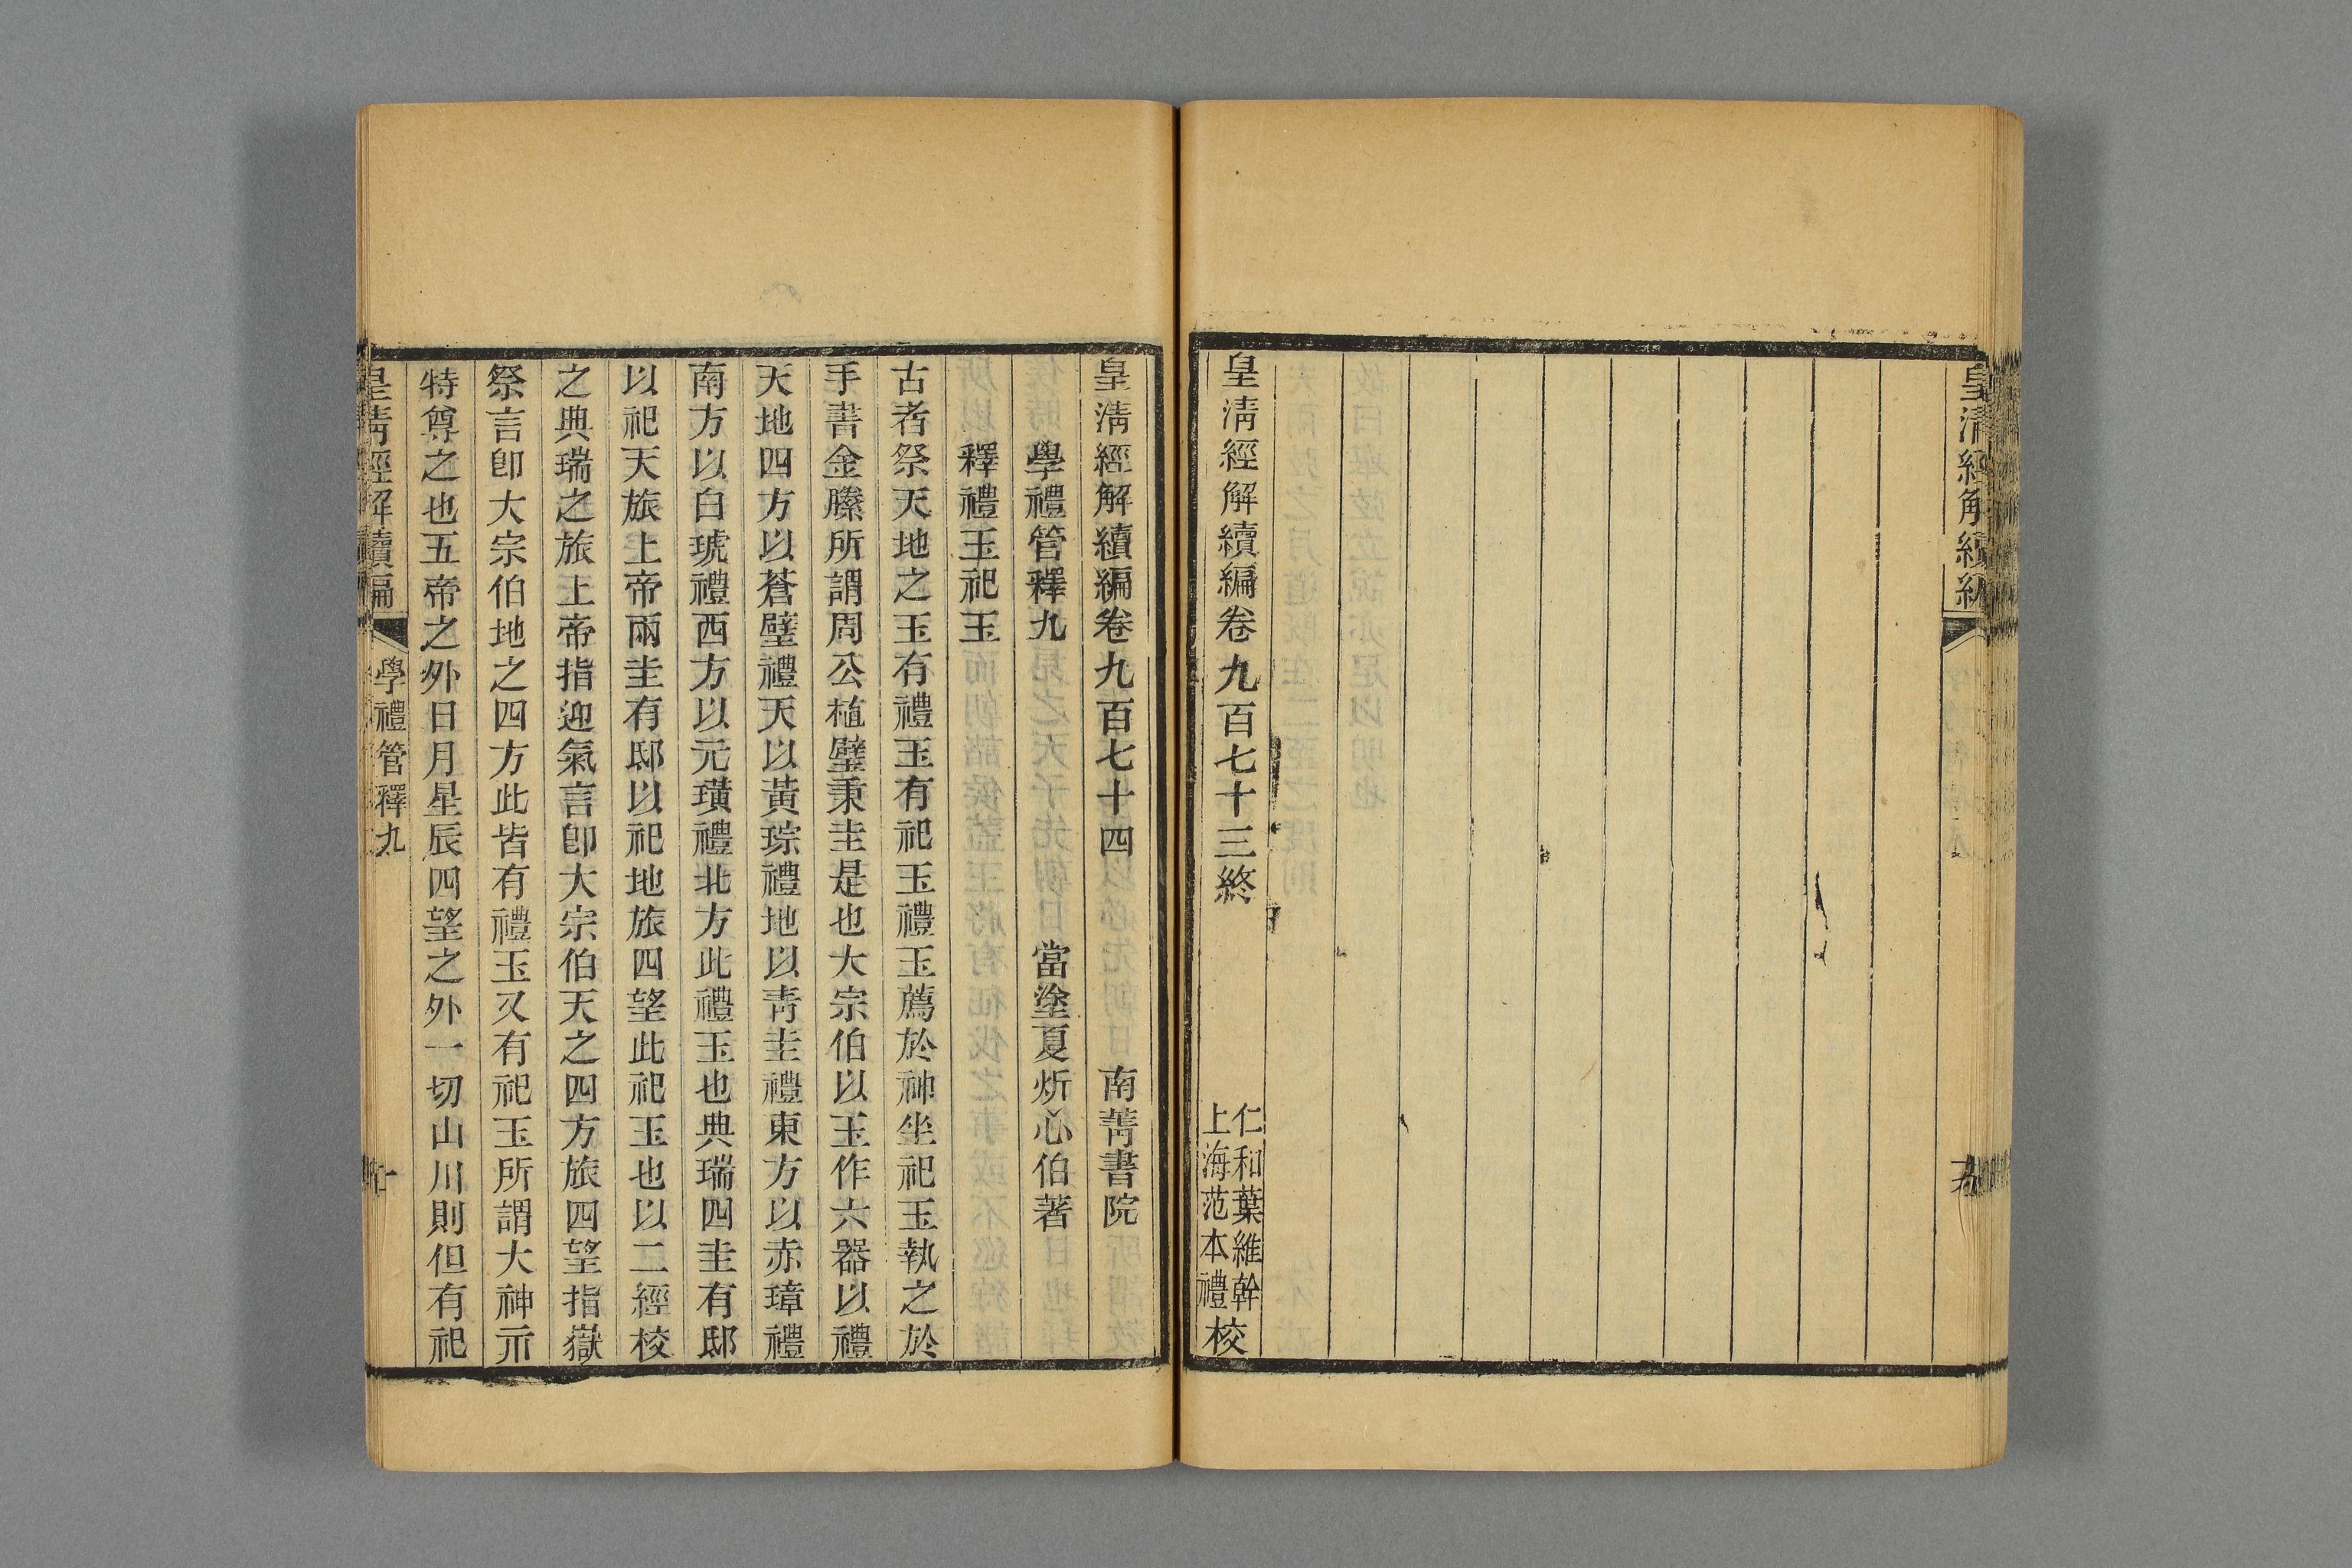 皇淸經解續編
皇淸經解續編卷九百七十三終
仁和葉維幹
上海范本禮校
皇淸經解續編卷九百七十四
南菁書院
學禮管釋九
當塗夏炘心伯著
釋禮玉祀玉
古者祭天地之玉有禮玉有祀玉禮玉薦於神坐祀玉執之於
手書金縢所謂周公植璧秉圭是也大宗伯以玉作六器以禮
天地四方以蒼璧禮天以黃琮禮地以靑圭禮東方以赤璋禮
南方以白琥禮西方以元璜禮北方此禮玉也典瑞四圭有邸
以祀天旅上帝兩圭有邸以祀地旅四望此祀玉也以二經校
之典瑞之旅上帝指迎氣言卽大宗伯天之四方旅四望指嶽
祭言卽大宗伯地之四方此皆有禮玉又有祀玉所謂大神示
特尊之也五帝之外日月星辰四望之外一切山川則但有祀
皇淸經解續編
學禮管釋九
一